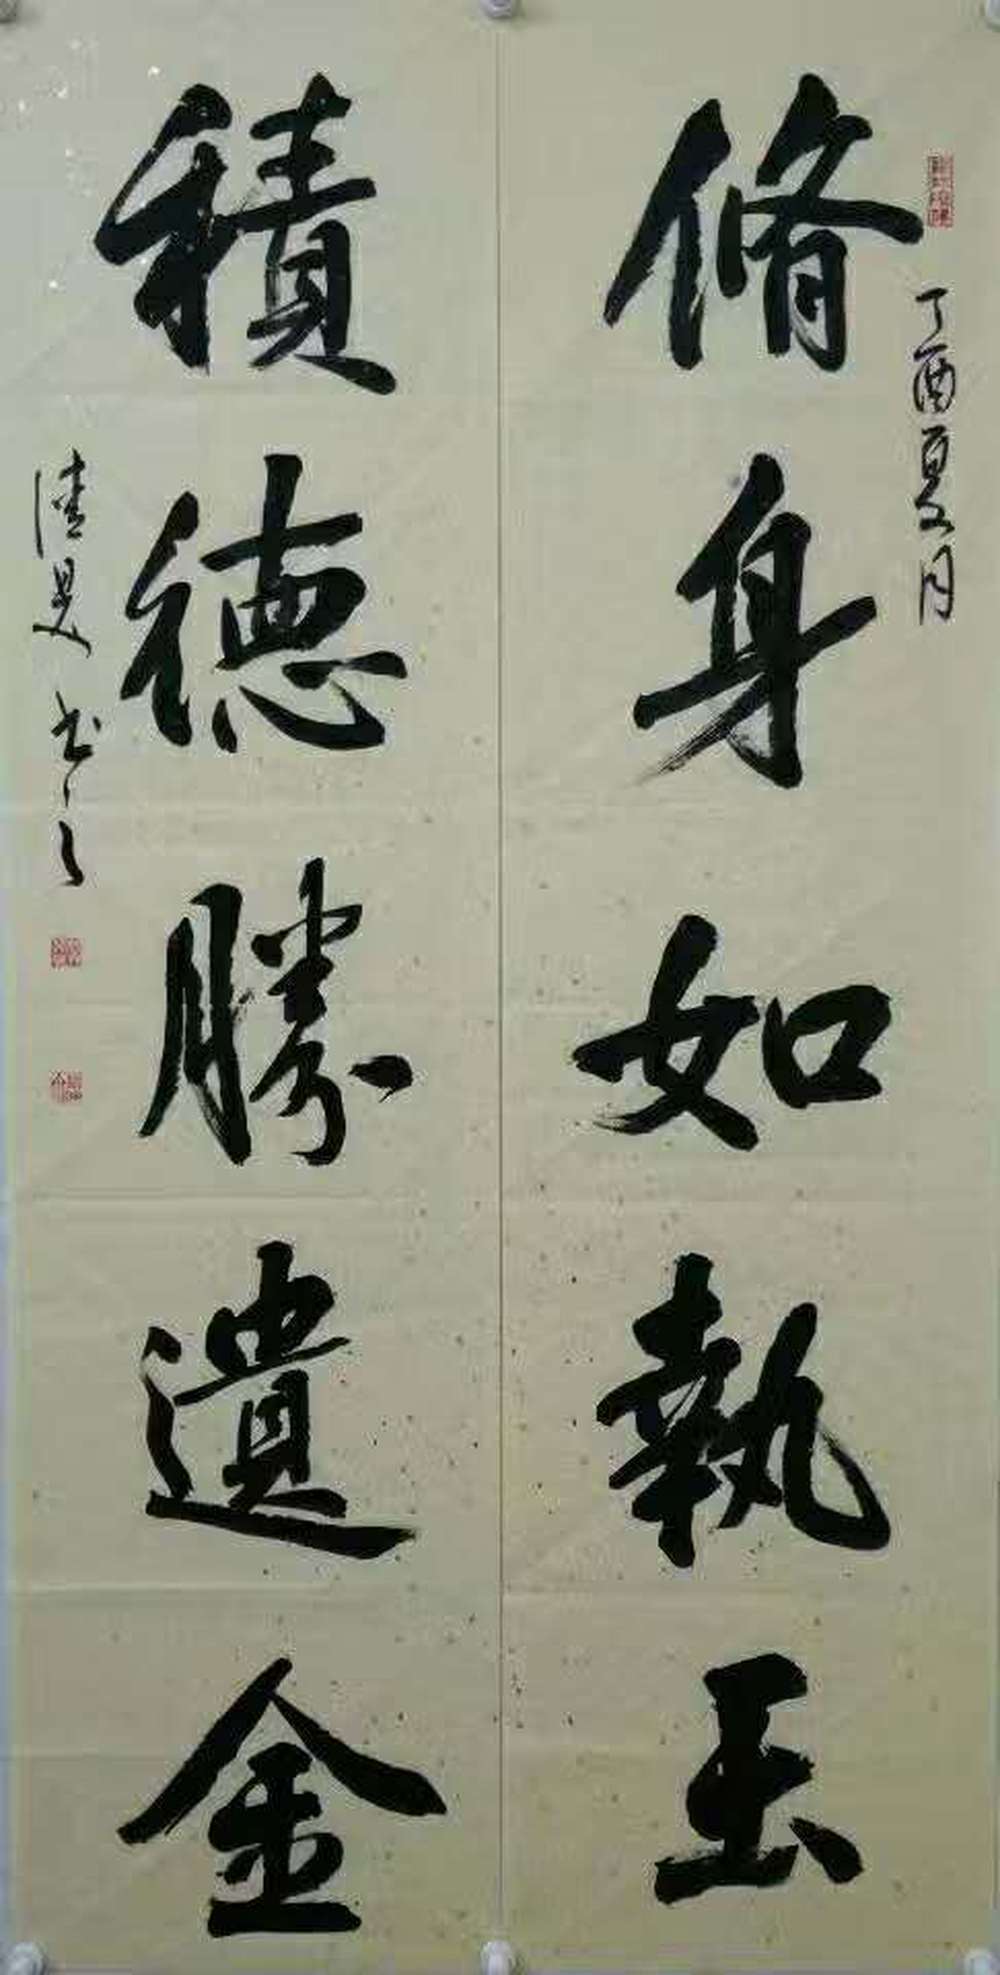 丁酉夏月
脩身如執玉
積德勝遺金
书之